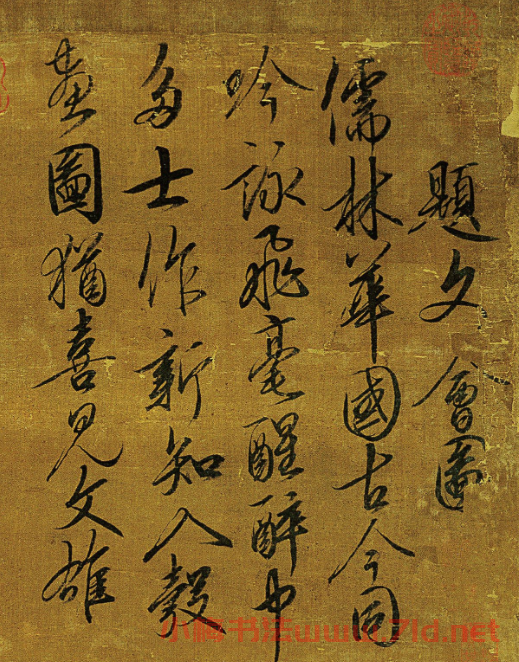 題文會圖
儒林華國古今同
吟詠飛毫醒醉中
多士作新知入彀
畫圖猶喜見文雄
www.7ld.net